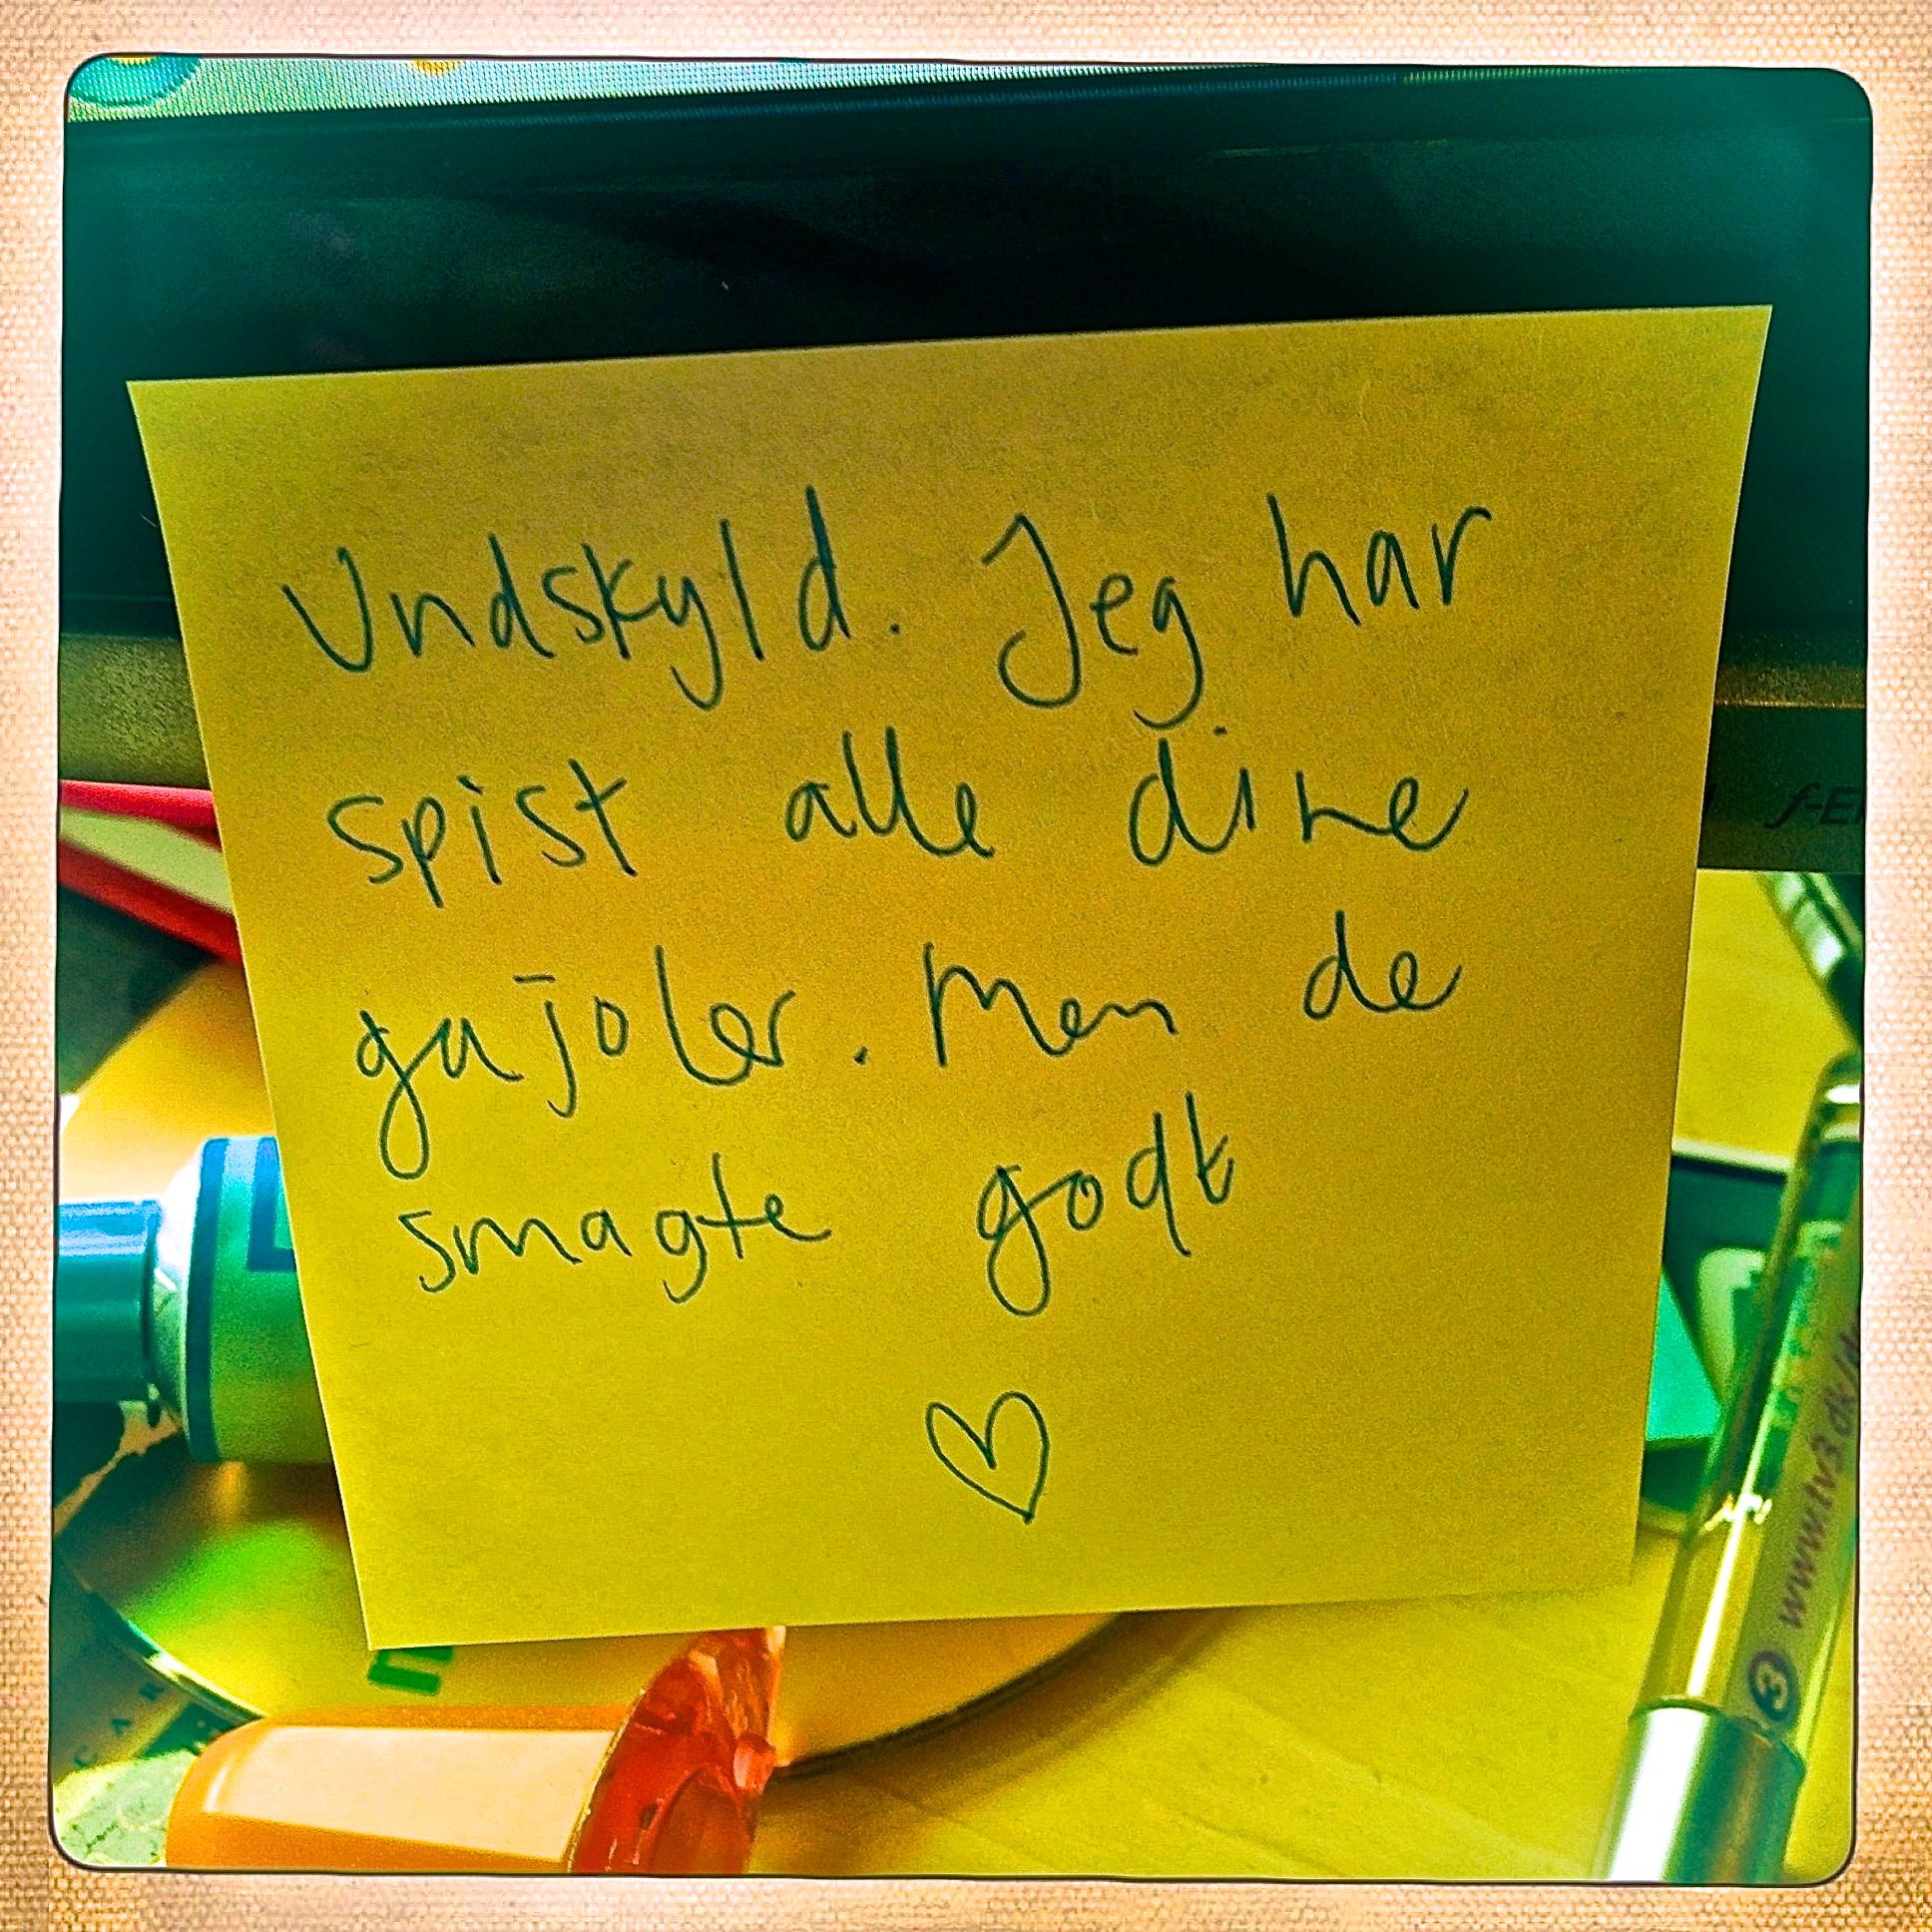 Undskyld. Jeg har
spist alle dine
gajoler. Men de
smagte godt
♡
www.tv3.dk/
3